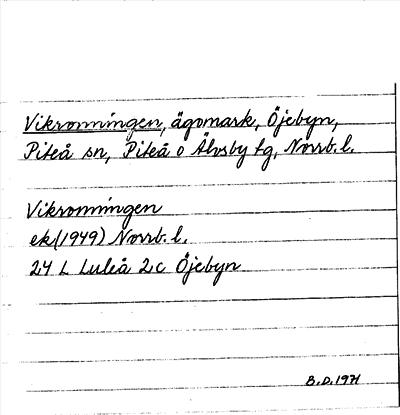 Vikronningen, ägomark, Öjebyn,
Piteå sn, Piteå o Älvsby tg, Norrb. l.
Vikronningen
ek(1949) Norrb. l.
24 L Luleå 2c Öjebyn
B.D. 1971